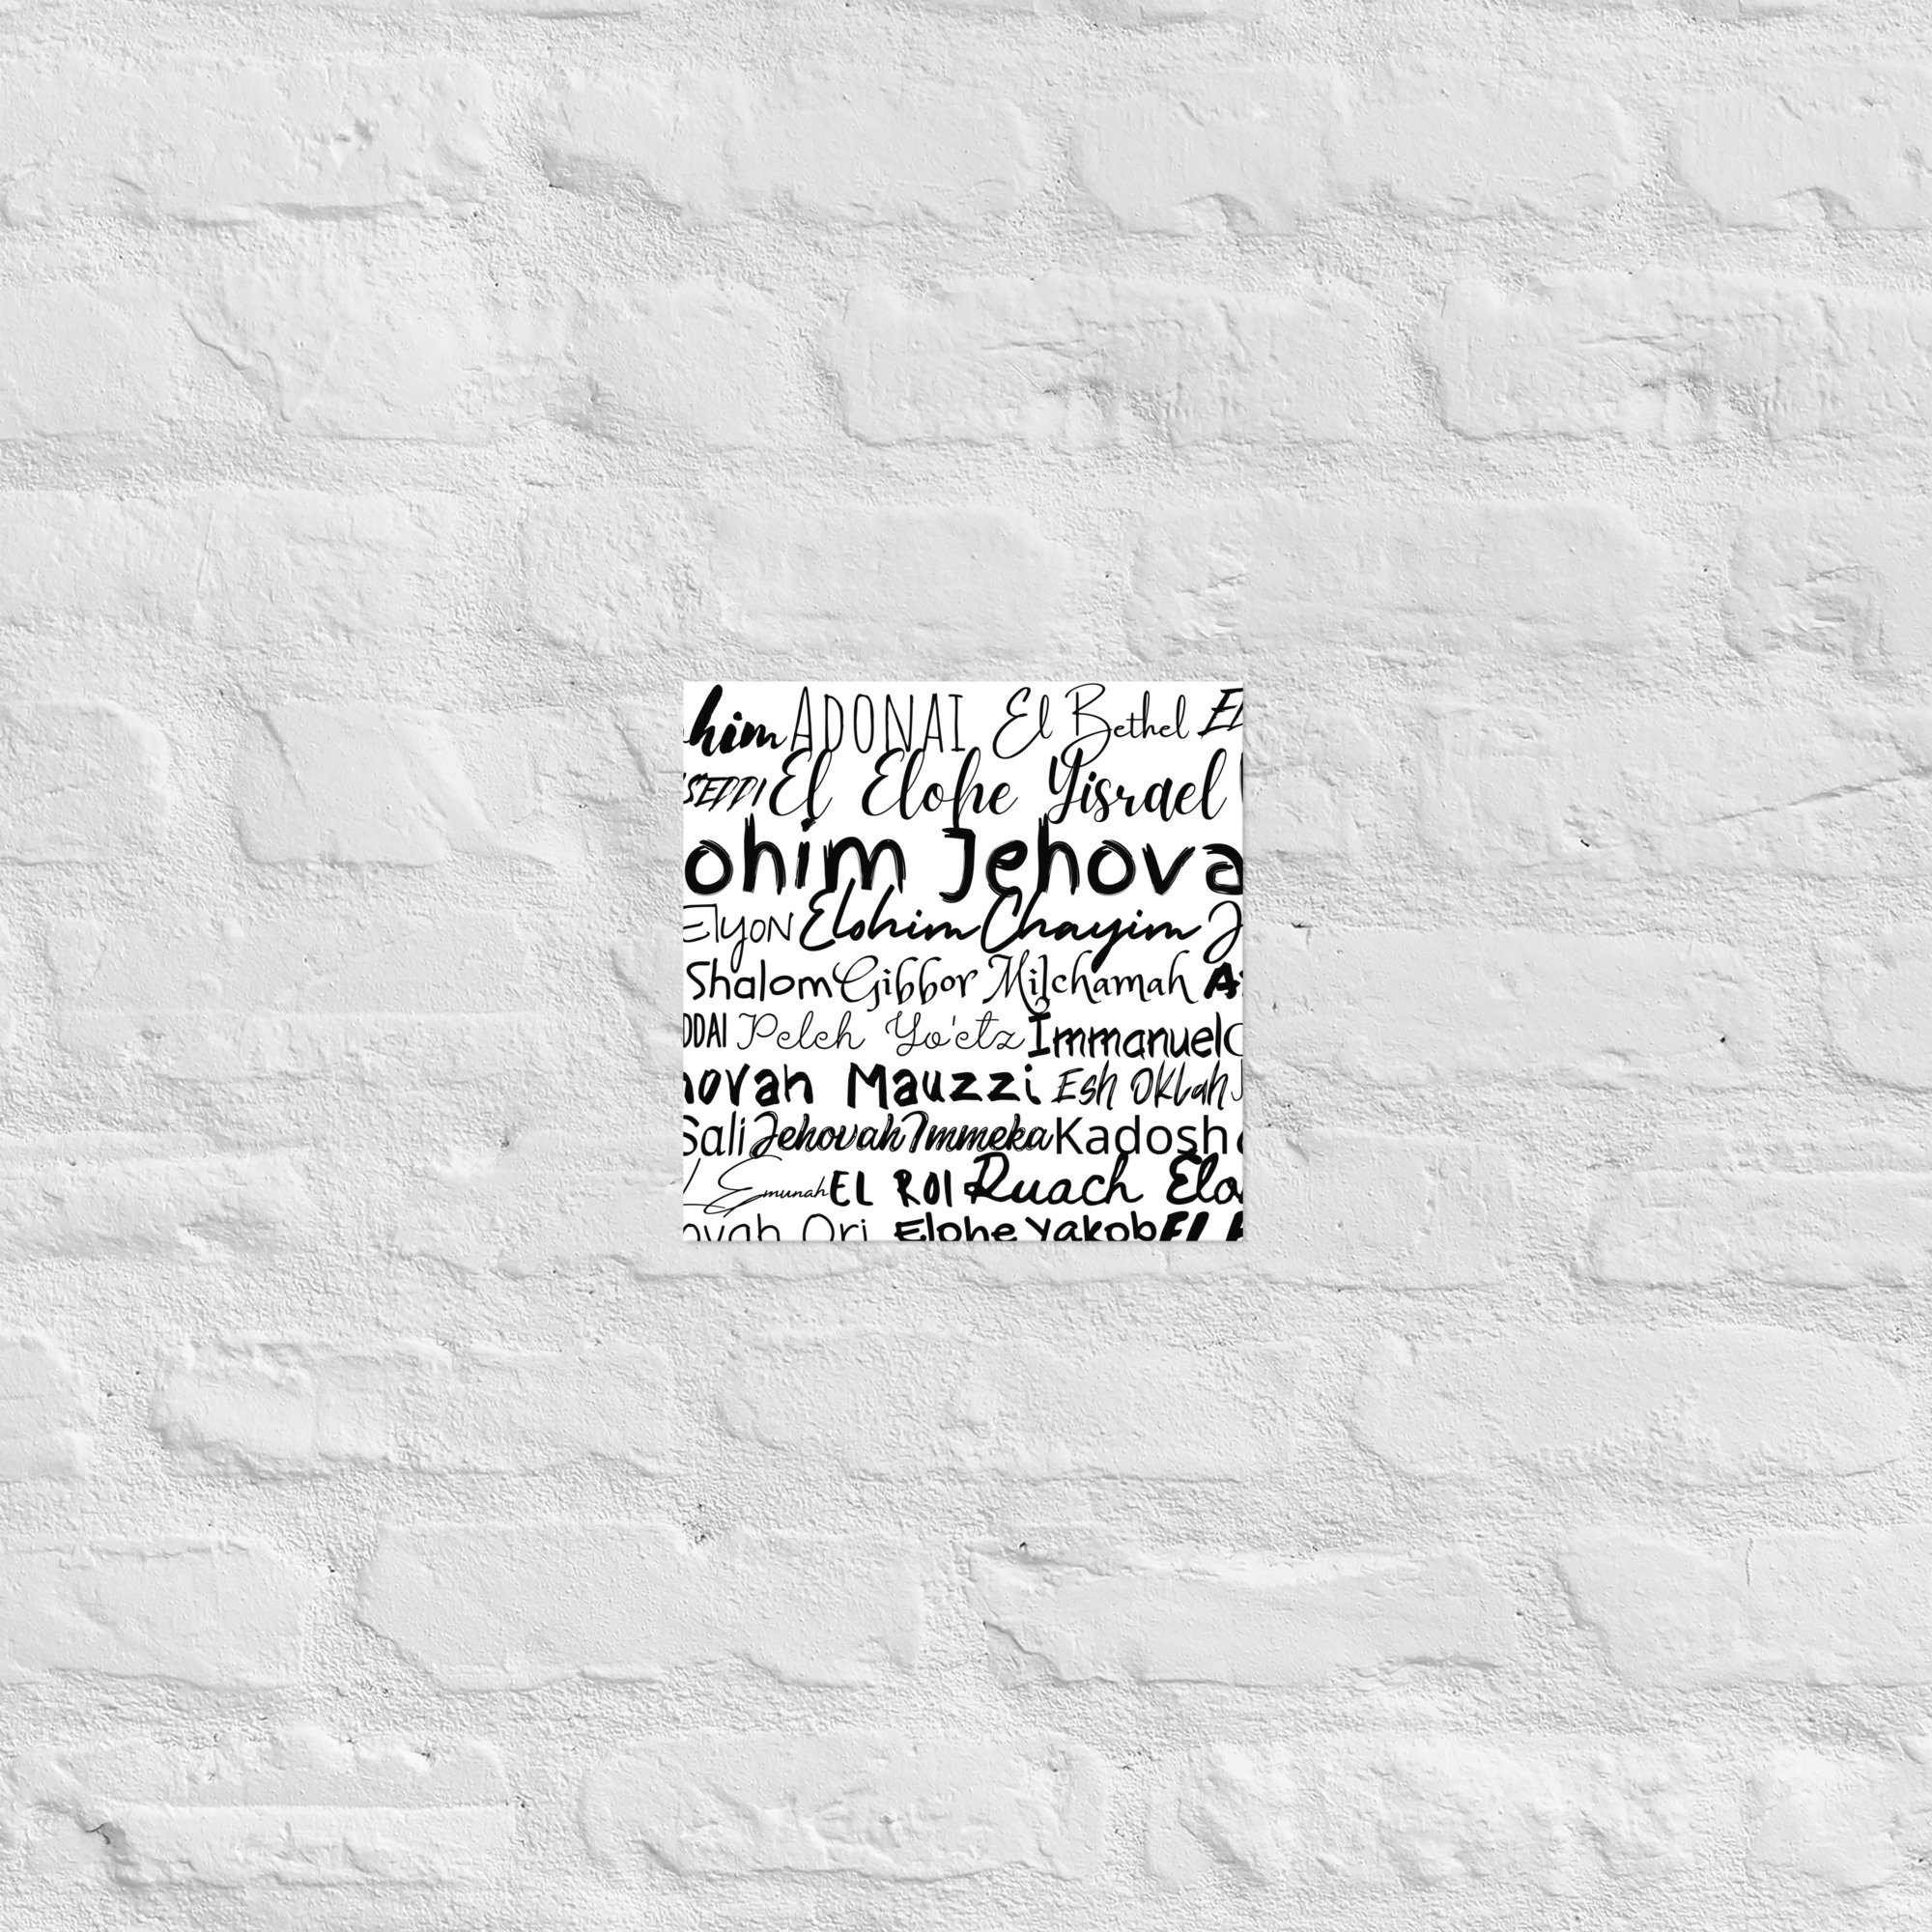 him ADONAI El Bethel El
SEDDI El Elohe Yisrael
ohim Jehova
Elyon Elohim Chayim J
Shalom Gibbor Milchamah A
DDAI Peleh Yo'etz Immanuel
hovah Mauzzi Esh Oklah
Sali Jehovah Immeka Kadosh
El Emunah EL ROI Ruach Elo
ovah Ori Elohe Yakob EL